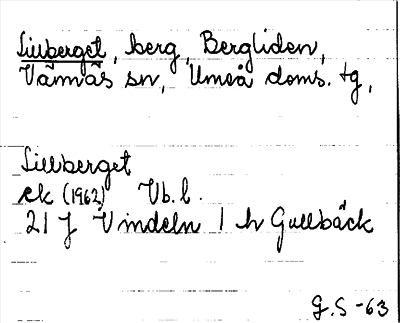 Lillberget, berg, Bergliden,
Vännäs sn, Umeå doms. tg,
Lillberget
ek (1962) Vb. l.
21 J Vindeln 1 h Gullbäck
G.S -63